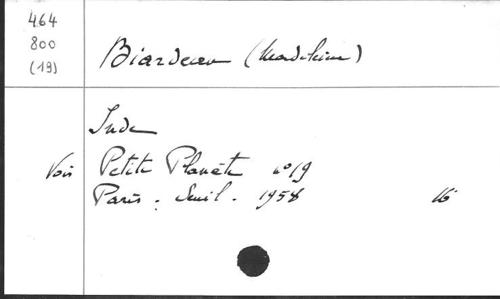 464
800
(19)
Biardeau (Madeleine)
Inde
Voir Petite Planète n° 19
Paris. Seuil. 1958 16